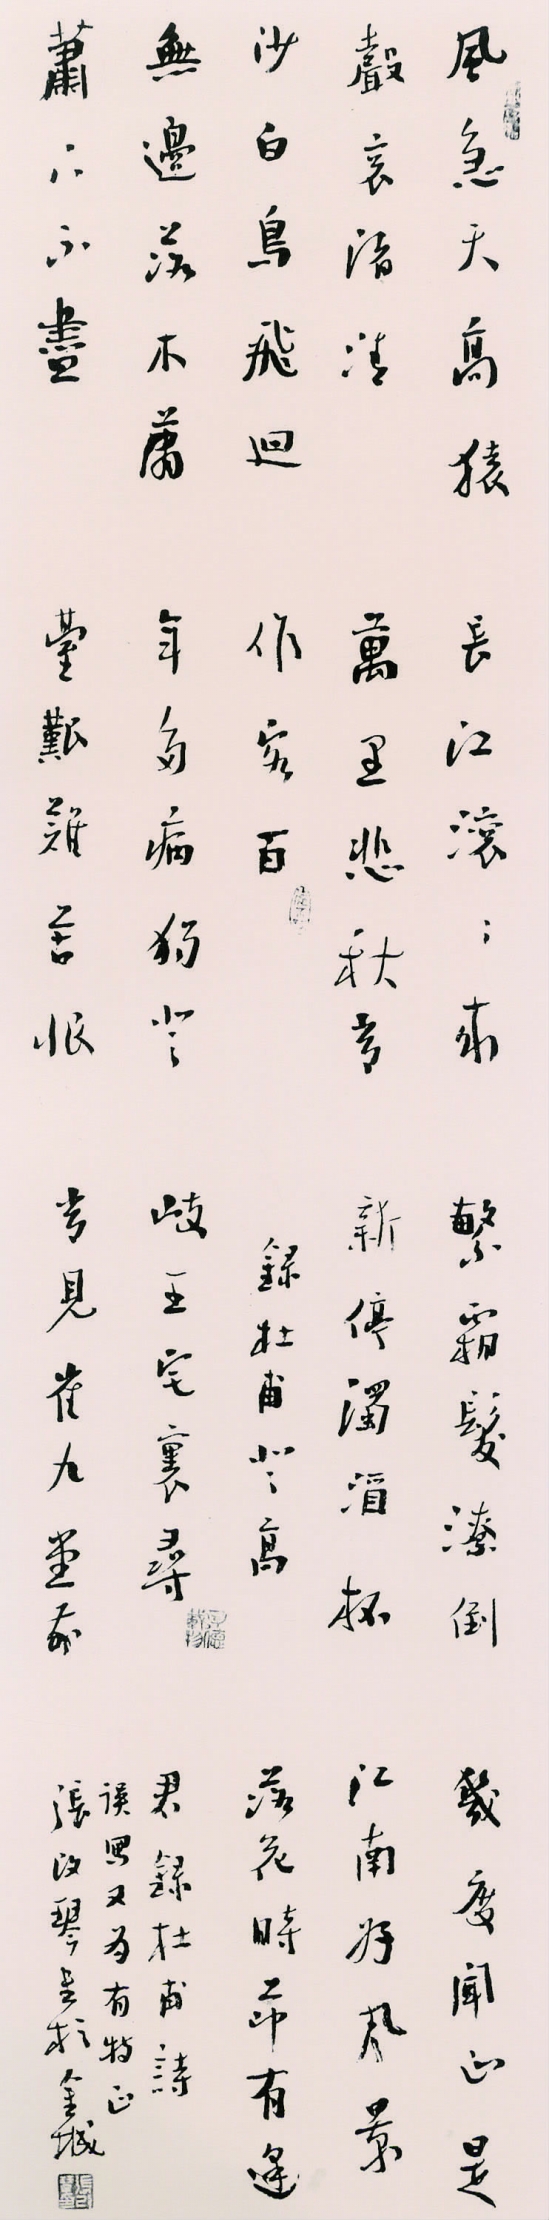 風急天高猿
聲哀渚清
沙白鳥飛迴
無邊落木蕭
蕭下不盡
長江滾〻來
萬里悲秋常
作客百
年多病獨登
臺艱難苦恨
繁霜鬢潦倒
新停濁酒杯
錄杜甫登高
岐王宅裏尋
常見崔九堂前
幾度聞正是
江南好風景
落花時節有逢
君錄杜甫詩
误寫又為有特正
張改琴書於金城